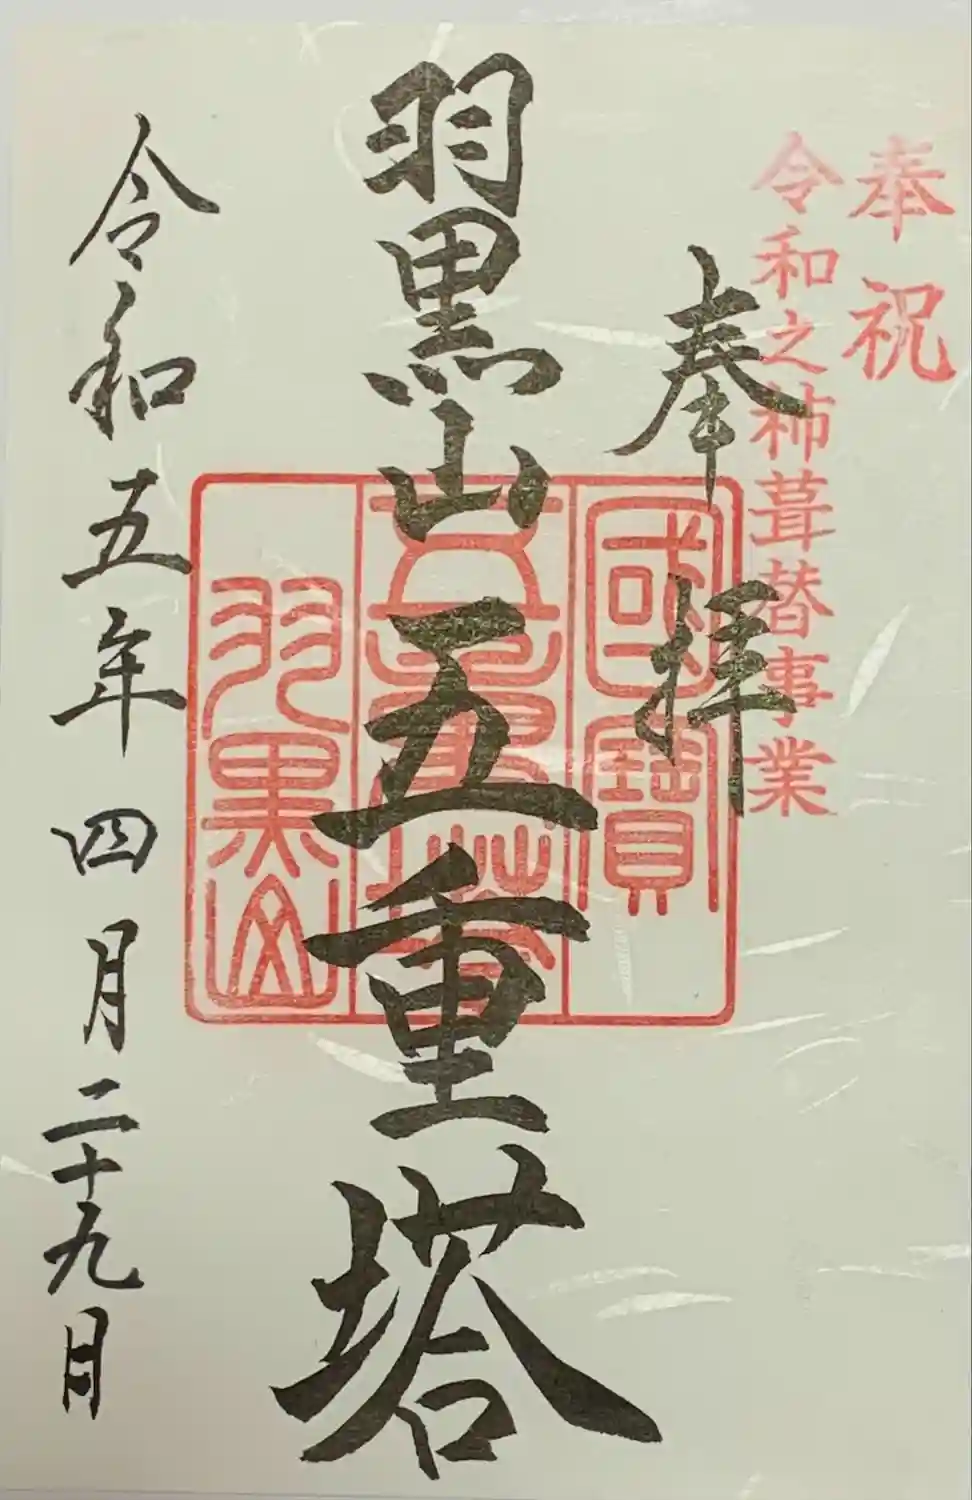 奉祝
令和之杮葺替事業
奉拝
國寶
五重塔
羽黒山
羽黒山五重塔
令和五年四月二十九日